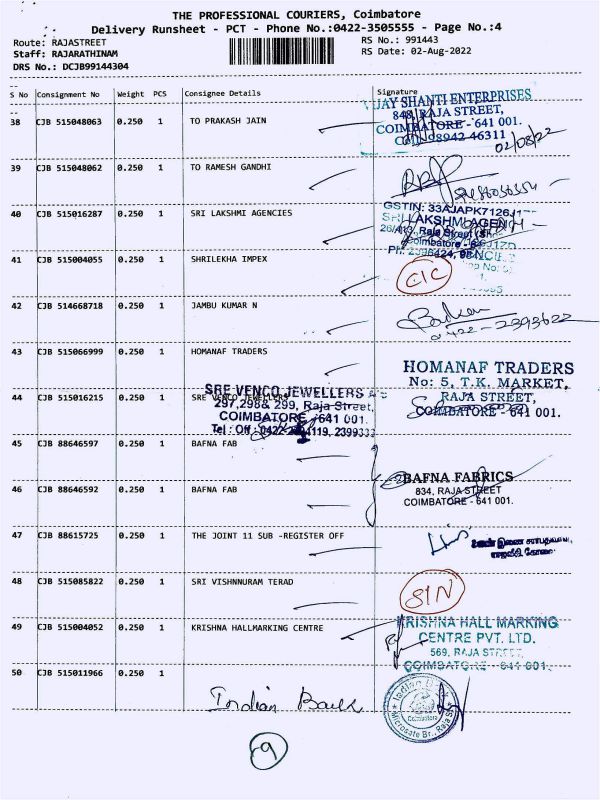 THE PROFESSIONAL COURIERS, Coimbatore
Delivery Runsheet - PCT - Phone No.:0422-3505555 - Page No.:4
Route: RAJASTREET
RS No.: 991443
Staff: RAJARATHINAM
RS Date: 02-Aug-2022
DRS No.: DCJB99144304
S No Consignment No Weight PCS Consignee Details Signature
38 CJB 515048063 0.250 1 TO PRAKASH JAIN
VIJAY SHANTI ENTERPRISES
848, RAJA STREET,
COIMBATORE - 641 001.
98942 46311
02/08/22
39 CJB 515048062 0.250 1 TO RAMESH GANDHI
40 CJB 515016287 0.250 1 SRI LAKSHMI AGENCIES
GSTIN: 33AJAPK7126J
SRI LAKSHMI AGEN
Raja Street
Coimbatore
41 CJB 515004055 0.250 1 SHRILEKHA IMPEX
CIC
42 CJB 514668718 0.250 1 JAMBU KUMAR N
0422-2393622
43 CJB 515066999 0.250 1 HOMANAF TRADERS
HOMANAF TRADERS
No: 5, T.K. MARKET,
RAJA STREET,
COIMBATORE - 641 001.
44 CJB 515016215 0.250 1 SRE VENCO JEWELLERS
SRE VENCO JEWELLERS
297,298& 299, Raja Street,
COIMBATORE - 641 001.
Tel : Off : 0422- 119, 2399333
45 CJB 88646597 0.250 1 BAFNA FAB
46 CJB 88646592 0.250 1 BAFNA FAB
BAFNA FABRICS
834, RAJA STREET
COIMBATORE - 641 001.
47 CJB 88615725 0.250 1 THE JOINT 11 SUB -REGISTER OFF
48 CJB 515085822 0.250 1 SRI VISHNNURAM TERAD
SIN
49 CJB 515004052 0.250 1 KRISHNA HALLMARKING CENTRE
KRISHNA HALL MARKING
CENTRE PVT. LTD.
569, RAJA STREET,
COIMBATORE - 641 001.
50 CJB 515011966 0.250 1
Indian Bank
Indian
Coimbatore
Microsate Br., Raja St
9